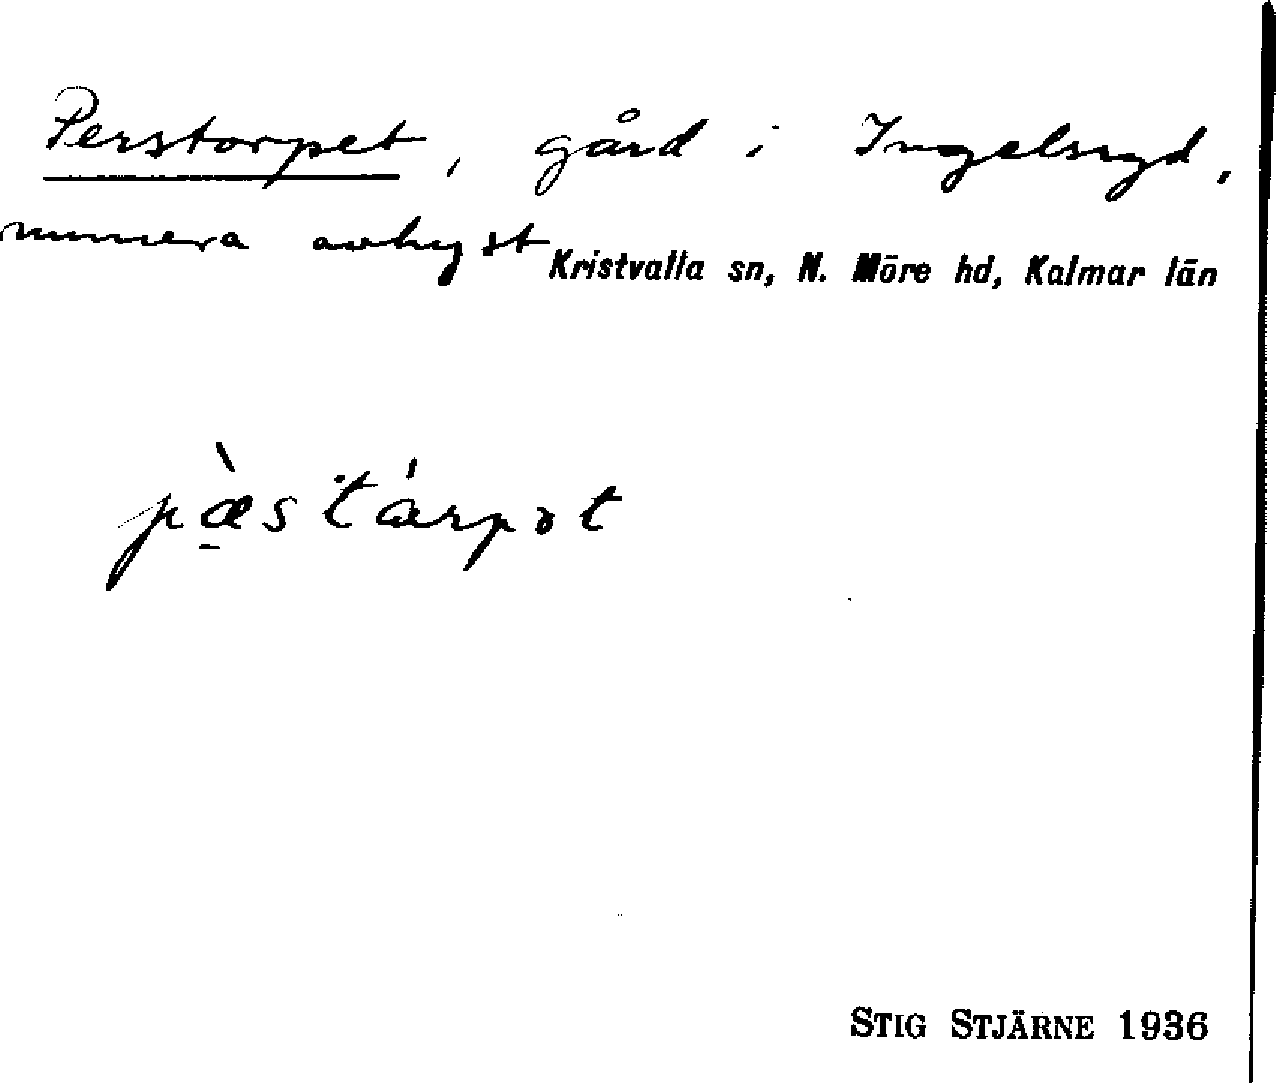 Perstorpet, gård i Ingelsryd,
numera avhyst Kristvalla sn, N. Möre hd, Kalmar län
pæ̀stárpət
STIG STJÄRNE 1936